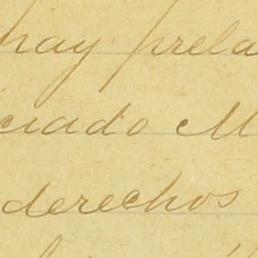 hay prela
ciado M
derechos